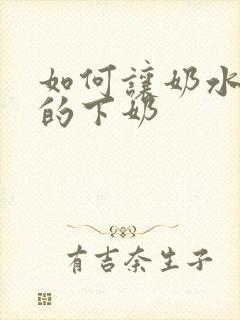 如何讓奶水
的下奶
有吉奈生子